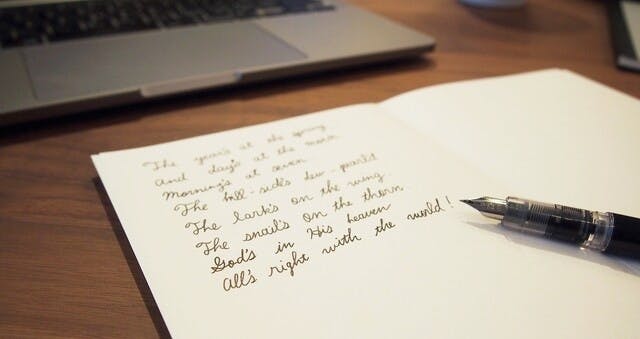 The year's at the spring
And day's at the morn
Morning's at seven
The hill-side's dew-pearl'd
The lark's on the wing
The snail's on the thorn.
God's in His heaven
All's right with the world!